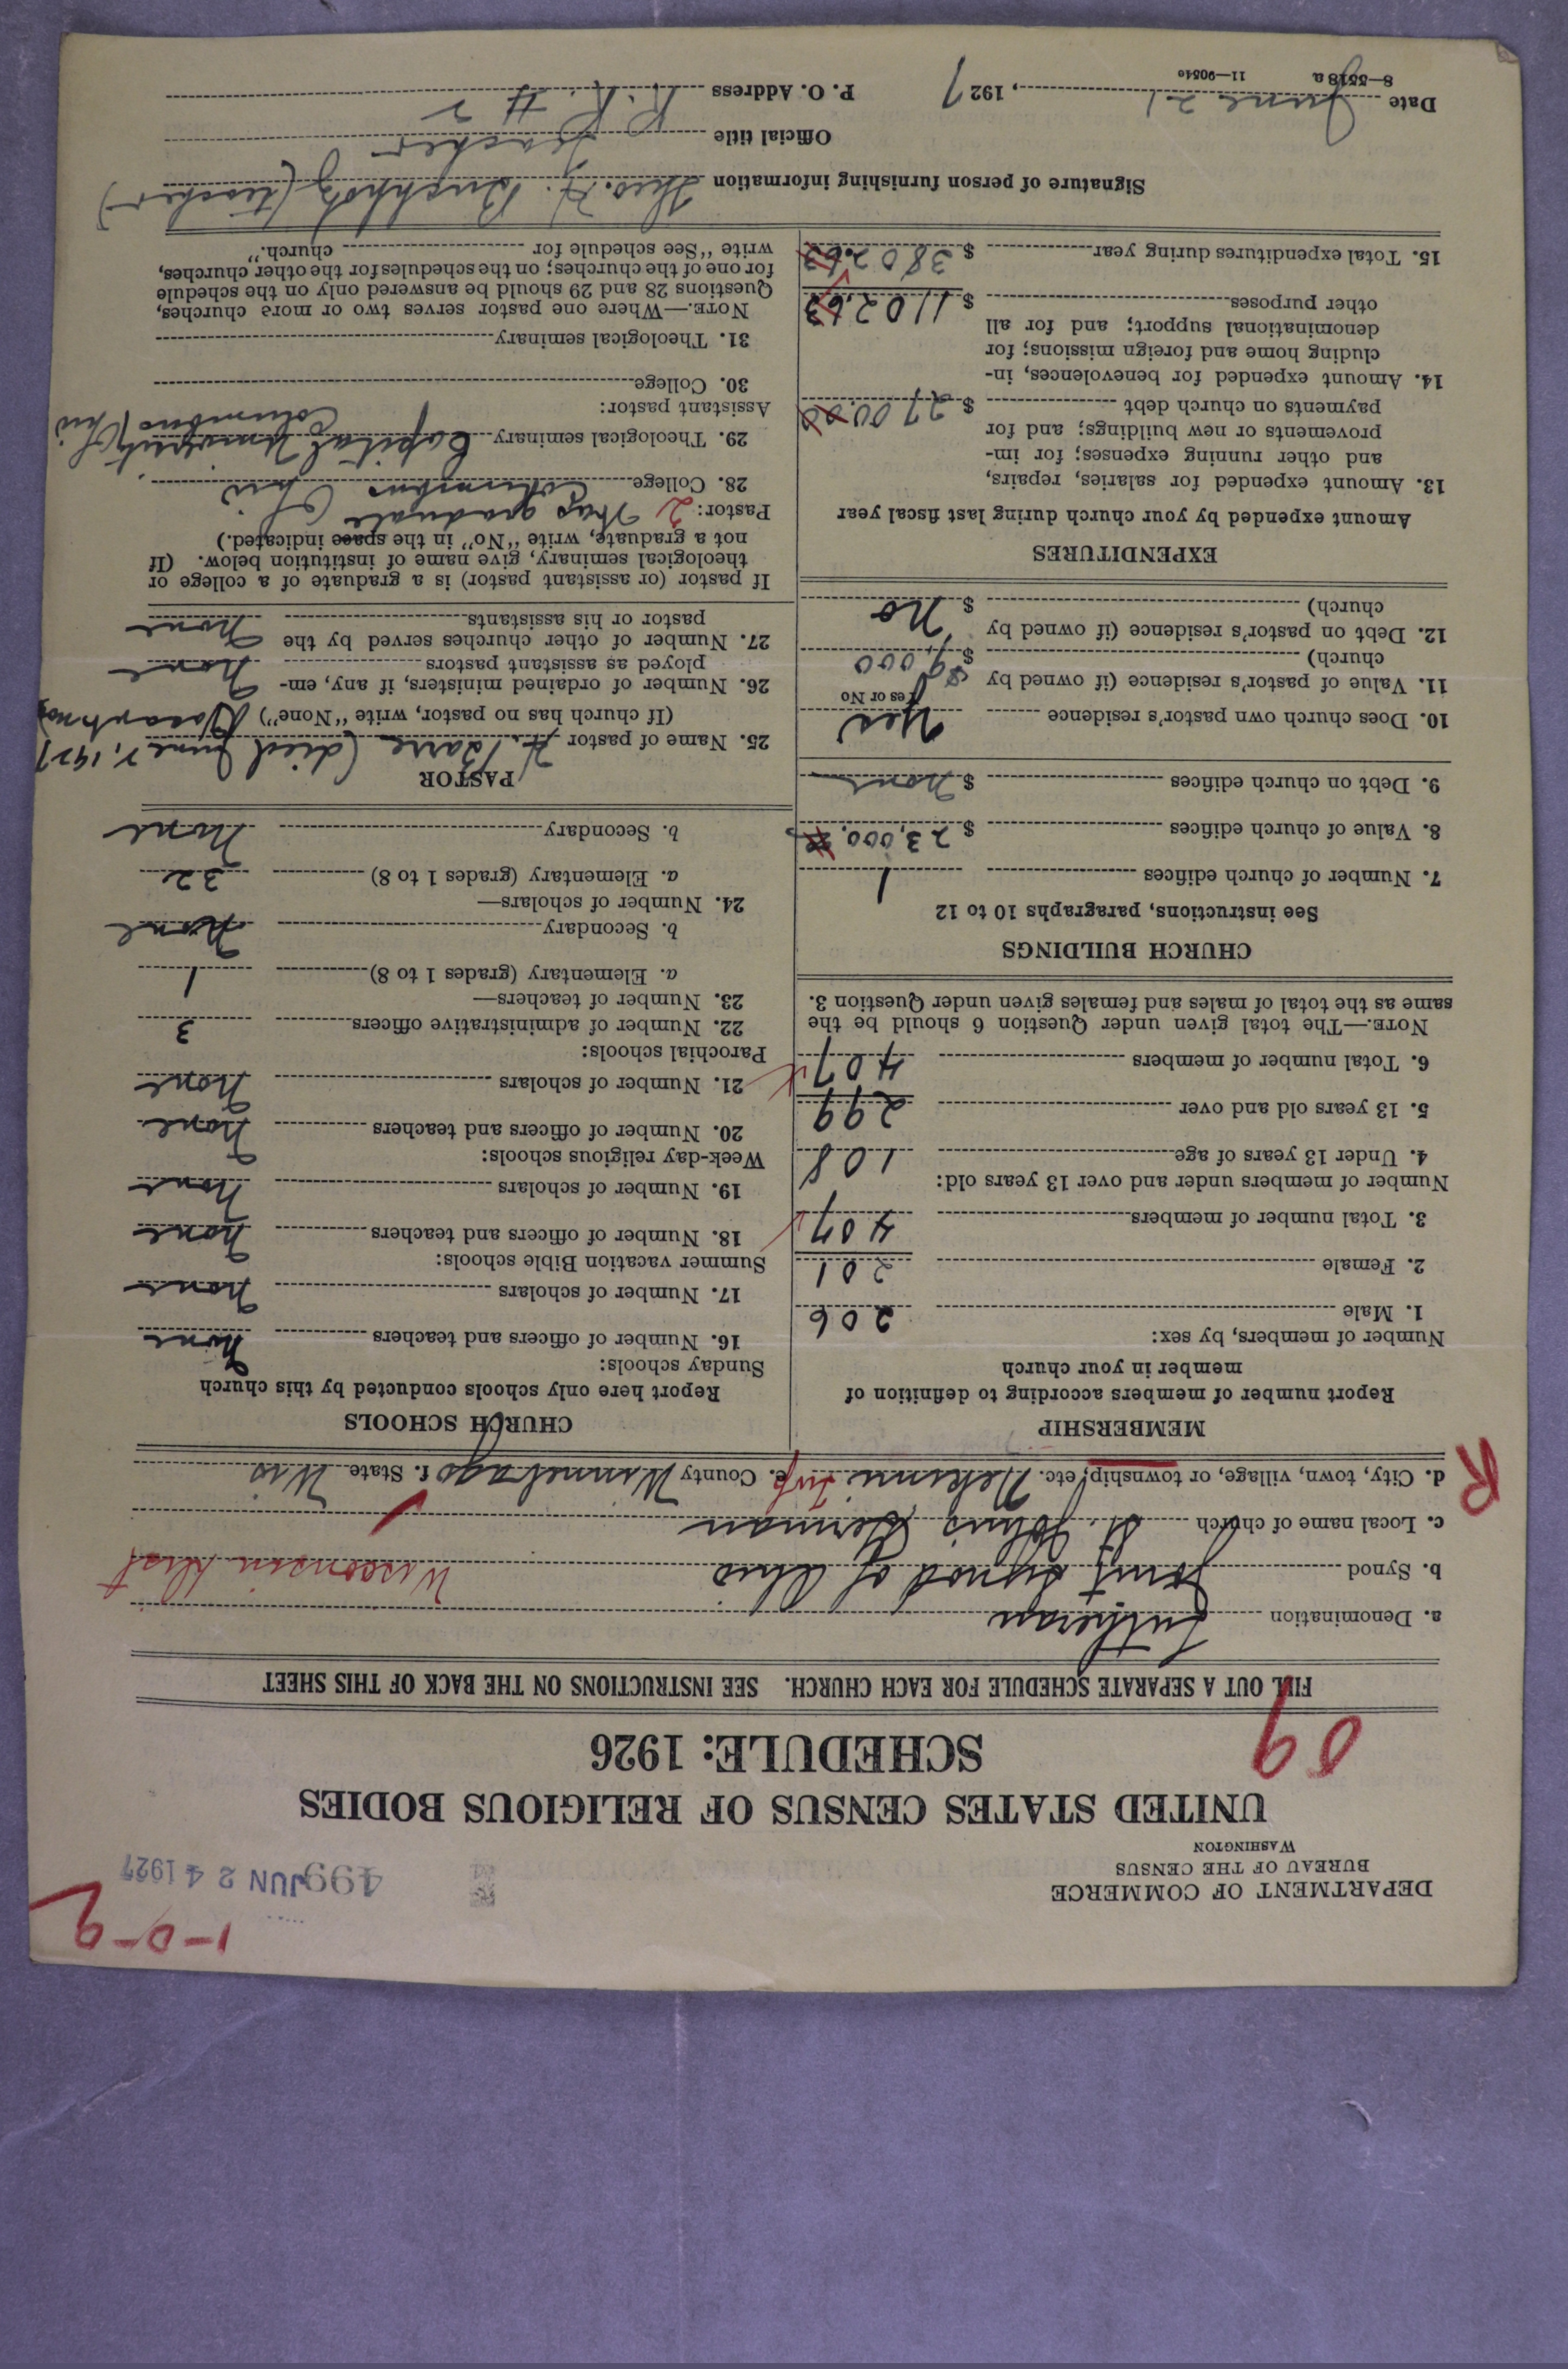 1-0-2
DEPARTMENT OF COMMERCE
BUREAU OF THE CENSUS
WASHINGTON
499 JUN 24 1927
UNITED STATES CENSUS OF RELIGIOUS BODIES
SCHEDULE: 1926
09
FILL OUT A SEPARATE SCHEDULE FOR EACH CHURCH. SEE INSTRUCTIONS ON THE BACK OF THIS SHEET
a. Denomination Lutheran
b. Synod Joint Synod of Ohio Wisconsin Dist
c. Local name of church St. Johns German
R
d. City, town, village, or township, etc. Nekimi Twp e. County Winnebago f. State Wis
MEMBERSHIP
Report number of members according to definition of
member in your church
Number of members, by sex:
1. Male 206
2. Female 201
3. Total number of members 407
Number of members under and over 13 years old:
4. Under 13 years of age 108
5. 13 years old and over 299
6. Total number of members 407
NOTE.—The total given under Question 6 should be the
same as the total of males and females given under Question 3.
CHURCH BUILDINGS
See instructions, paragraphs 10 to 12
7. Number of church edifices 1
8. Value of church edifices $ 23,000.
9. Debt on church edifices $ None
10. Does church own pastor's residence Yes
Yes or No
11. Value of pastor's residence (if owned by
church) $
12. Debt on pastor's residence (if owned by
church) $ No
EXPENDITURES
Amount expended by your church during last fiscal year
13. Amount expended for salaries, repairs,
and other running expenses; for im-
provements or new buildings; and for
payments on church debt $ 2700.00
14. Amount expended for benevolences, in-
cluding home and foreign missions; for
denominational support; and for all
other purposes $ 1102.63
15. Total expenditures during year $ 3802.63
CHURCH SCHOOLS
Report here only schools conducted by this church
Sunday schools:
16. Number of officers and teachers None
17. Number of scholars None
Summer vacation Bible schools:
18. Number of officers and teachers None
19. Number of scholars None
Week-day religious schools:
20. Number of officers and teachers None
21. Number of scholars None
Parochial schools:
22. Number of administrative officers 3
23. Number of teachers—
a. Elementary (grades 1 to 8) 1
b. Secondary None
24. Number of scholars—
a. Elementary (grades 1 to 8) 32
b. Secondary None
PASTOR
25. Name of pastor H. Barre (died June 7, 1927
(If church has no pastor, write "None") Vacant now)
26. Number of ordained ministers, if any, em-
ployed as assistant pastors None
27. Number of other churches served by the
pastor or his assistants None
If pastor (or assistant pastor) is a graduate of a college or
theological seminary, give name of institution below. (If
not a graduate, write "No" in the space indicated.)
Pastor: 2 Was graduate
28. College Columbus Ohio
29. Theological seminary Capital University Columbus Ohio
Assistant pastor:
30. College
31. Theological seminary
NOTE.—Where one pastor serves two or more churches,
Questions 28 and 29 should be answered only on the schedule
for one of the churches; on the schedules for the other churches,
write "See schedule for church."
Signature of person furnishing information Theo. H. Buchholz (teacher)
Official title Teacher
Date June 21, 1927 P. O. Address R. R. # 2
8—5518a 11—9054c